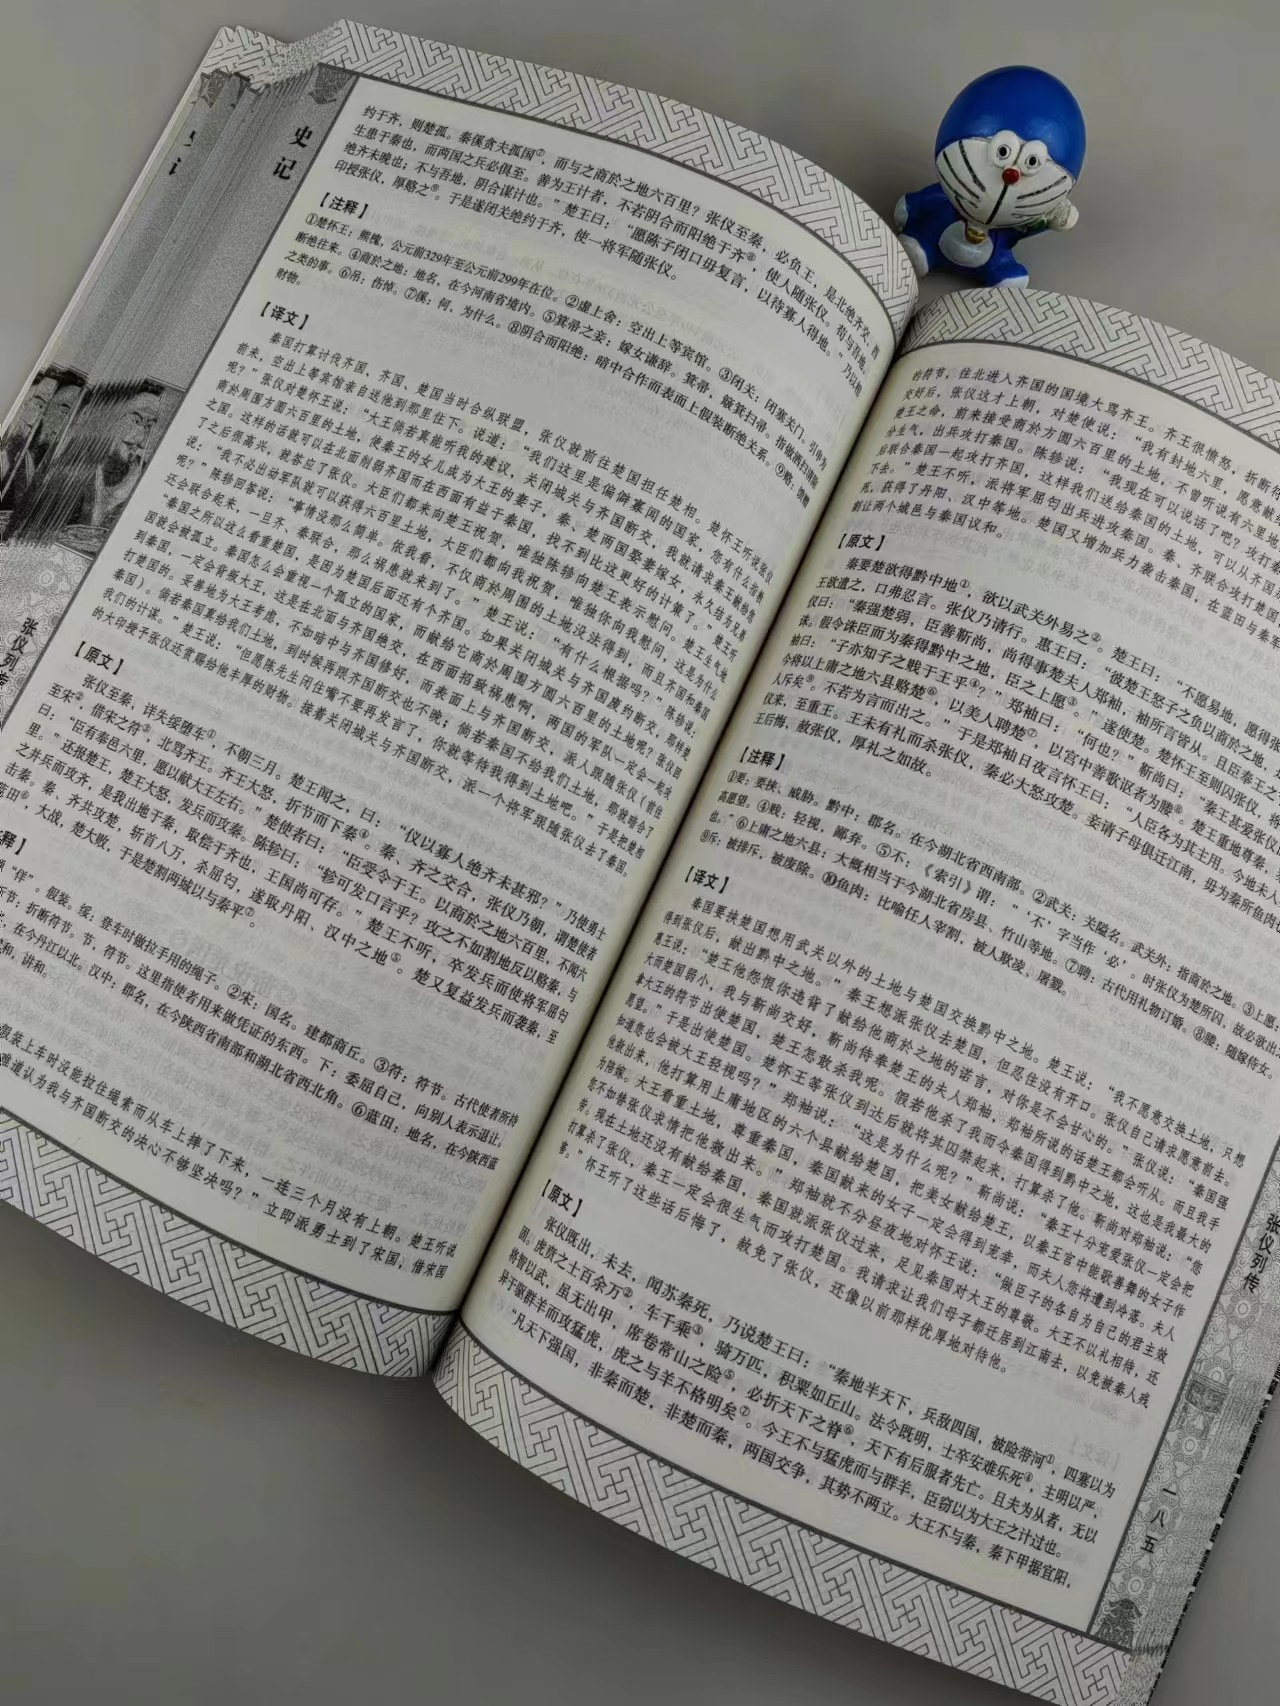 史记
约于齐，则楚孤。秦奚贪夫孤国⑦，而与之商於之地六百里？张仪至秦，必负王，是北绝齐交，西
生患于秦也，而两国之兵必俱至。善为王计者，不若阴合而阳绝于齐⑧，使人随张仪。苟与吾地，
绝齐未晚也；不与吾地，阴合谋计也。”楚王曰：“愿陈子闭口毋复言，以待寡人得地。”乃以相
印授张仪，厚赂之⑨。于是遂闭关绝约于齐，使一将军随张仪。
【注释】
①楚怀王：熊槐，公元前329年至公元前299年在位。②虚上舍：空出上等宾馆。③闭关：闭塞关门。引申为
断绝往来。④商於之地：地名，在今河南省境内。⑤箕帚之妾：嫁女谦辞。箕帚，簸箕扫帚。指做洒扫清除
之类的事。⑥吊：伤悼。⑦奚：何、为什么。⑧阴合而阳绝：暗中合作而表面上假装断绝关系。⑨赂：馈赠
财物。
【译文】
秦国打算讨伐齐国，齐国、楚国当时合纵联盟，张仪就前往楚国担任楚相。楚怀王听说张仪
前来，空出上等宾馆亲自送他到那里住下。说道：“我们这里是偏僻寡闻的国家，您有什么指教
呢？”张仪对楚怀王说：“大王倘若真能听我的建议，关闭城关与齐国断交，我就请求秦王献给您
商於周围方圆六百里的土地，使秦王的女儿成为大王的妻子，秦、楚两国娶妻嫁女，永久结为兄弟
之国。这样的话就可以在北面削弱齐国而在西面有益于秦国，找不到比这更好的计策了。”楚王听
了之后很高兴，就答应了张仪。大臣们都来向楚王祝贺，唯独陈轸向楚王表示慰问。楚王生气地
说：“我不必出动军队就可以获得六百里土地，大臣们都向我祝贺，唯独你向我慰问，这是为什么
呢？”陈轸回答说：“事情没那么简单。依我看，不仅商於周围的土地没法得到，而且齐国和秦国
还会联合起来，一旦齐、秦联合，那么祸患就来到了。”楚王说：“有什么根据吗？”陈轸说：
“秦国之所以这么看重楚国，是因为楚国后面还有个齐国。如果关闭城关与齐国废约断交，那样楚
国就会被孤立。秦国怎么会重视一个孤立的国家，而献给它商於周围方圆六百里的土地呢？张仪回
到秦国，一定会背叛大王，这是在北面与齐国绝交，在西面招致祸患啊，两国的军队一定会一起攻
打楚国的。妥善地为大王考虑，不如暗中与齐国修好，而表面上与齐国断交，派人跟随张仪（前往
秦国）。倘若秦国真给我们土地，到时候再跟齐国断交也不晚；倘若秦国不给我们土地，那就暗合了
我们的计谋。”楚王说：“但愿陈先生闭住嘴不要再发言了，你就等待我得到土地吧。”于是把楚相
的大印授予张仪还赏赐给他丰厚的财物。接着关闭城关与齐国断交，派一个将军跟随张仪去了秦国。
【原文】
张仪至秦，详失绥堕车①，不朝三月。楚王闻之，曰：“仪以寡人绝齐未甚邪？”乃使勇士
至宋②，借宋之符③，北骂齐王。齐王大怒，折节而下秦④。秦、齐之交合，张仪乃朝，谓楚使者
曰：“臣有奉邑六里，愿以献大王左右。”楚使者曰：“臣受令于王，以商於之地六百里，不闻六
里。”还报楚王，楚王大怒，发兵而攻秦。陈轸曰：“轸可发口言乎？攻之不如割地反以赂秦，与
之并兵而攻齐，是我出地于秦，取偿于齐也，王国尚可存。”楚王不听，卒发兵而使将军屈匄
击秦。秦、齐共攻楚，斩首八万，杀屈匄，遂取丹阳、汉中之地⑤。楚又复益发兵而袭秦，至
蓝田⑥，大战，楚大败，于是楚割两城以与秦平⑦。
释】
“佯”。假装。绥：登车时做拉手用的绳子。②宋：国名。建都商丘。③符：符节。古代使者所持
折节：折断符节。节，符节。这里指使者用来做凭证的东西。下：委屈自己，向别人表示退让。
在今丹江以北。汉中：郡名，在今陕西省南部和湖北省西北角。⑥蓝田：地名，在今陕西蓝
和，讲和。
假装上车时没能拉住绳索而从车上摔了下来，一连三个月没有上朝。楚王听说
难道认为我与齐国断交的决心不够坚决吗？”立即派勇士到了宋国，借宋国
的符节，往北进入齐国的国境大骂齐王。齐王很愤怒，折断符
交好后，张仪这才上朝，对楚使说：“我有封地六里，愿意献
楚王之命，前来接受商於方圆六百里的土地，不曾听说有六里地
分生气，出兵攻打秦国。陈轸说：“我现在可以说话了吧？攻打秦
后联合秦国一起攻打齐国，这样我们送给秦国的土地，可以从齐国
下去。”楚王不听，派将军屈匄出兵进攻秦国。秦、齐联合攻打楚国
死，获得了丹阳、汉中等地。楚国又增加兵力袭击秦国，在蓝田与秦军
割让两个城邑与秦国议和。
【原文】
秦要楚欲得黔中地①，欲以武关外易之②。楚王曰：“不愿易地，愿得张
王欲遣之，口弗忍言。张仪乃请行。惠王曰：“彼楚王怒子之负以商於之地，
仪曰：“秦强楚弱，臣善靳尚，尚得事楚夫人郑袖，袖所言皆从。且臣奉王之
诛。假令诛臣而为秦得黔中之地，臣之上愿③。”遂使楚。楚怀王至则囚张仪，将
袖曰：“子亦知子之贱于王乎④？”郑袖曰：“何也？”靳尚曰：“秦王甚爱张仪
今将以上庸之地六县赂楚⑥，以美人聘楚⑦，以宫中善歌讴者为媵⑧。楚王重地尊秦，
人斥矣⑨。不若为言而出之。”于是郑袖日夜言怀王曰：“人臣各为其主用。今地未入
仪来，至重王。王未有礼而杀张仪，秦必大怒攻楚。妾请子母俱迁江南，毋为秦所鱼肉也
王后悔，赦张仪，厚礼之如故。
【注释】
①要：要挟、威胁。黔中：郡名。在今湖北省西南部。②武关：关隘名。武关外：指商於之地。③上愿：
高愿望。④贱：轻视，鄙弃。⑤不：《索引》谓：“‘不’字当作‘必’。时张仪为楚所囚，故必欲出
也。”⑥上庸之地六县：大概相当于今湖北省房县、竹山等地。⑦聘：古代用礼物订婚。⑧媵：随嫁侍女。
⑨斥：被排斥，被废除。⑩鱼肉：比喻任人宰割，被人欺凌、屠戮。
【译文】
秦国要挟楚国想用武关以外的土地与楚国交换黔中之地。楚王说：“我不愿意交换土地，只想
得到张仪后，献出黔中之地。”秦王想派张仪去楚国，但忍住没有开口。张仪自己请求愿意前去。
惠王说：“楚王他怨恨你违背了献给他商於之地的诺言，对你是不会甘心的。”张仪说：“秦国强
大而楚国弱小，我与靳尚交好，靳尚侍奉楚王的夫人郑袖，郑袖所说的话楚王都会听从。而且我手
拿大王的符节出使楚国，楚王怎敢杀我呢。假若他杀了我而令秦国得到黔中之地，这也是我最大的
愿望。”于是出使楚国。楚怀王等张仪到达后就将其囚禁起来，打算杀了他。靳尚对郑袖说：“您
知道您也会被大王轻视吗？”郑袖说：“这是为什么呢？”靳尚说：“秦王十分宠爱张仪一定会把
他救出来，他打算用上庸地区的六个县献给楚国，把美女献给楚王，以秦王宫中能歌善舞的女子作
为陪嫁。大王看重土地，尊重秦国，秦国献来的女子一定会得到宠幸，而夫人您将遭到冷落。夫人
您不如替张仪求情把他救出来。”郑袖就不分昼夜地对怀王说：“做臣子的各自为自己的君主效
劳。现在土地还没有献给秦国，秦国就派张仪过来，足见秦国对大王的尊敬。大王不以礼相待，还
打算杀了张仪，秦王一定会很生气而攻打楚国。我请求让我们母子都迁居到江南去，以免被秦人残
害。”怀王听了这些话后悔了，赦免了张仪，还像以前那样优厚地对待他。
【原文】
张仪既出，未去，闻苏秦死，乃说楚王曰：“秦地半天下，兵敌四国，被险带河①，四塞以为
固。虎贲之士百余万②，车千乘③，骑万匹，积粟如丘山。法令既明，士卒安难乐死④，主明以严，
将智以武，虽无出甲，席卷常山之险⑤，必折天下之脊⑥，天下有后服者先亡。且夫为从者，无以
异于驱群羊而攻猛虎，虎之与羊不格明矣⑦。今王不与猛虎而与群羊，臣窃以为大王之计过也。
“凡天下强国，非秦而楚，非楚而秦，两国交争，其势不两立。大王不与秦，秦下甲据宜阳，
张仪列传
张仪列传
一八五